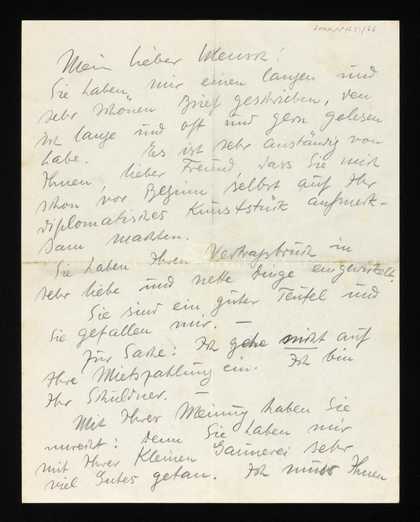 Mein lieber Mensch!
Sie haben mir einen langen und
sehr schönen Brief geschrieben, den
ich lange und oft und gern gelesen
habe. Es ist sehr anständig von
Ihnen, lieber Freund, dass Sie mich
schon vor Beginn selbst auf Ihr
diplomatisches Kunststück aufmerk-
sam machten.
Sie haben Ihren Vertragsbruch in
sehr liebe und nette Dinge eingewickelt.
Sie sind ein guter Teufel und
Sie gefallen mir. —
Zur Sache: Ich gehe nicht auf
Ihre Mietszahlung ein. Ich bin
Ihr Schuldner. —
Mit Ihrer Meinung haben Sie
unrecht: denn Sie haben mir
mit Ihrer kleinen Gaunerei sehr
viel Gutes getan. Ich muss Ihnen